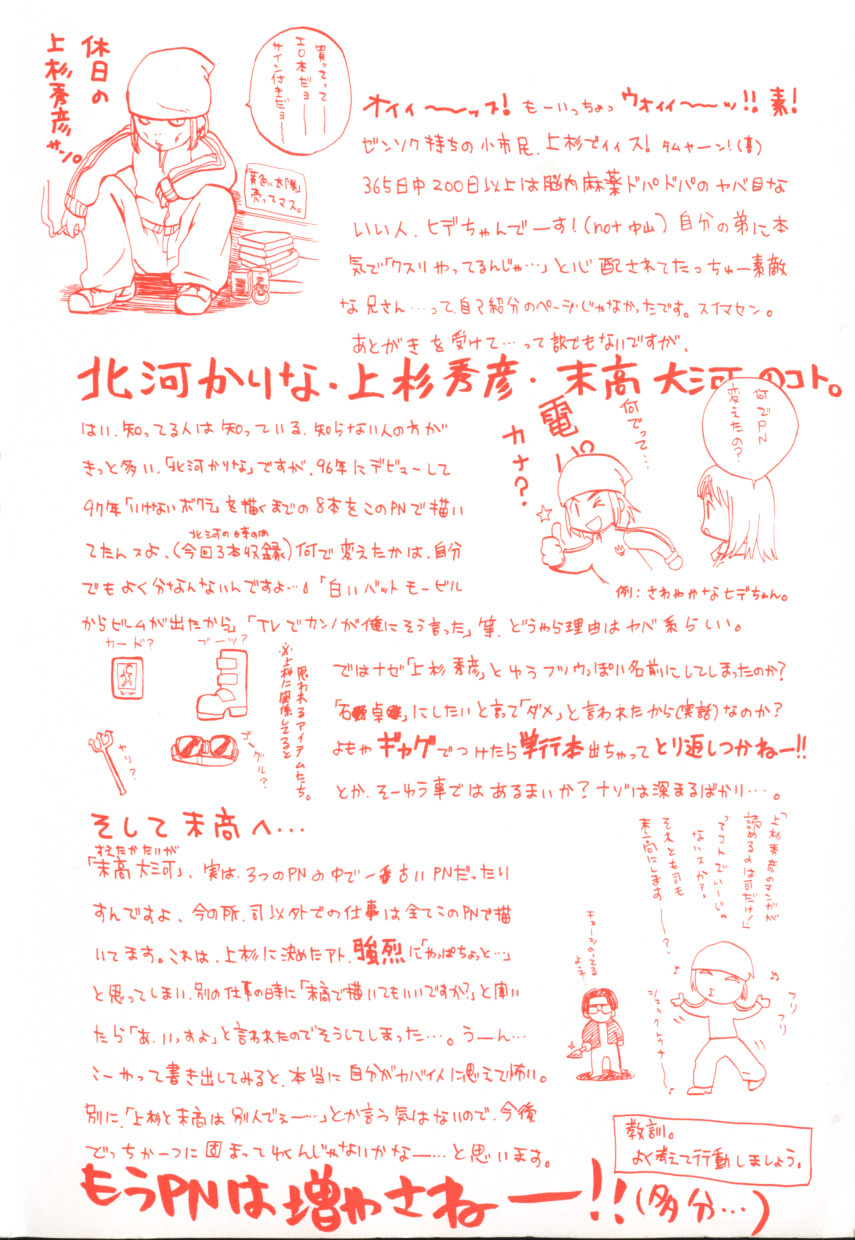 休日の
上杉秀彦
買ってってー
エロ本だョー
サイン付きだョー
売ってマス。
オイィ〜〜ッス! もーいっちょっ ウォィィ〜〜ッ!! 素!
ゼンソク持ちの小市民、上杉でイイス! タムャーン!(喜)
365日中200日以上は脳内麻薬ドパドパのヤバ目な
いい人、ヒデちゃんでーす!(not 中山) 自分の弟に本
気で「クスリやってるんじゃ…」と心配されてたっちゅー素敵
な兄さん…って、自己紹分のページじゃなかったです。スイマセン。
あとがきを受けて…って訳でもないですが、
北河かりな・上杉秀彦・末高大河のコト。
何でPN
変えたの?
何でって…
電波
カナ?
例:さわやかなヒデちゃん。
はい、知ってる人は知っている、知らない人の方が
きっと多い、「北河かりな」ですが、96年にデビューして
97年「いけないボクラ」を描くまでの8本をこのPNで描い
てたんスよ、(今回3本収録)何で変えたかは、自分
北河の時のは
でもよく分なんないんですよ…。「白いバットモービル
からビームが出たから」「TVでカン/が俺にそう言った」等、どうやら理由はヤバ系らしい。
カード?
ブーツ?
ヤリ?
ゴーグル?
※上杉に関係してると
思われるアイテムたち。
ではナゼ「上杉秀彦」とゆうフツウっぽい名前にしてしまったのか?
「石野卓球」にしたいと言って「ダメ」と言われたから(実話)なのか?
よもやギャグでつけたら単行本出ちゃってとり返しつかねー!!
とか、そーゆう事ではあるまいか? ナゾは深まるばかり…。
そして末高へ…
すえたかたいが
「末高大河」、実は、3つのPNの中で一番古いPNだったり
すんですよ、今の所、司以外での仕事は全てこのPNで描
いてます。これは、上杉に決めたアト、強烈に「やっぱちょっと…」
と思ってしまい、別の仕事の時に「末高で描いてもいいですか?」と聞い
たら「あ、いっすよ」と言われたのでそうしてしまった…。うーん…
こーやって書き出してみると、本当に自分がヤバイ人に思えて怖い。
別に、「上杉と末高は別人でぇ〜…」とか言う気はないので、今後
でっちか一つに固まってくんじゃないかなー…と思います。
「上杉秀彦のマンガが
読めるのは司だけ!」
ってコトでいーじゃ
ないスか?
それとも司も
末高にします――?
フリ
フリ
教訓。
よく考えて行動しましょう。
もうPNは増やさねーー!!(多分…)